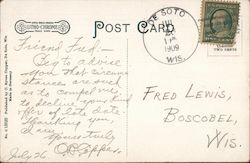 POST CARD
LITHO-CHROME
DE SOTO
1909
WIS.
Friend Fred:-
Beg to advise
you that circum
stances are such
as to compel me
to decline your kind
offer of late date
Thanking you
I am
Yours truly
July 26
Fred Lewis,
Boscobel,
Wis.